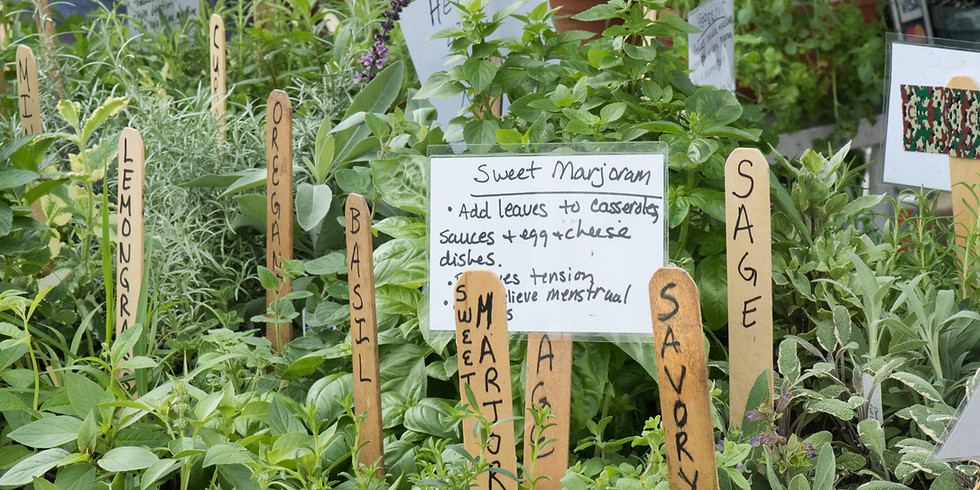 He
MI
CU
OREGAN
LEMONGRA
BASIL
Sweet Marjoram
• Add leaves to casseroles,
sauces + egg + cheese
dishes.
es tension
lieve menstrual
s
SWEET
MARJOR
AGE
SAVORY
SAGE